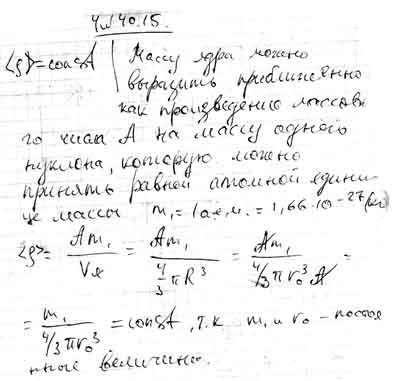 Чл 40.15.
<ρ> = const | Массу ядра можно
выразить приближенно
как произведение массово
го числа А на массу одного
нуклона, которую можно
принять равной атомной едини
це массы m₁ = 1 а.е.м. = 1,66·10⁻²⁷ (кг)
<ρ> = Am₁/Vя = Am₁/(4/3 πR³) = Am₁/(4/3 πr₀³ A) =
= m₁/(4/3 πr₀³) = const, т.к m₁ и r₀ – постоя
нные величины.